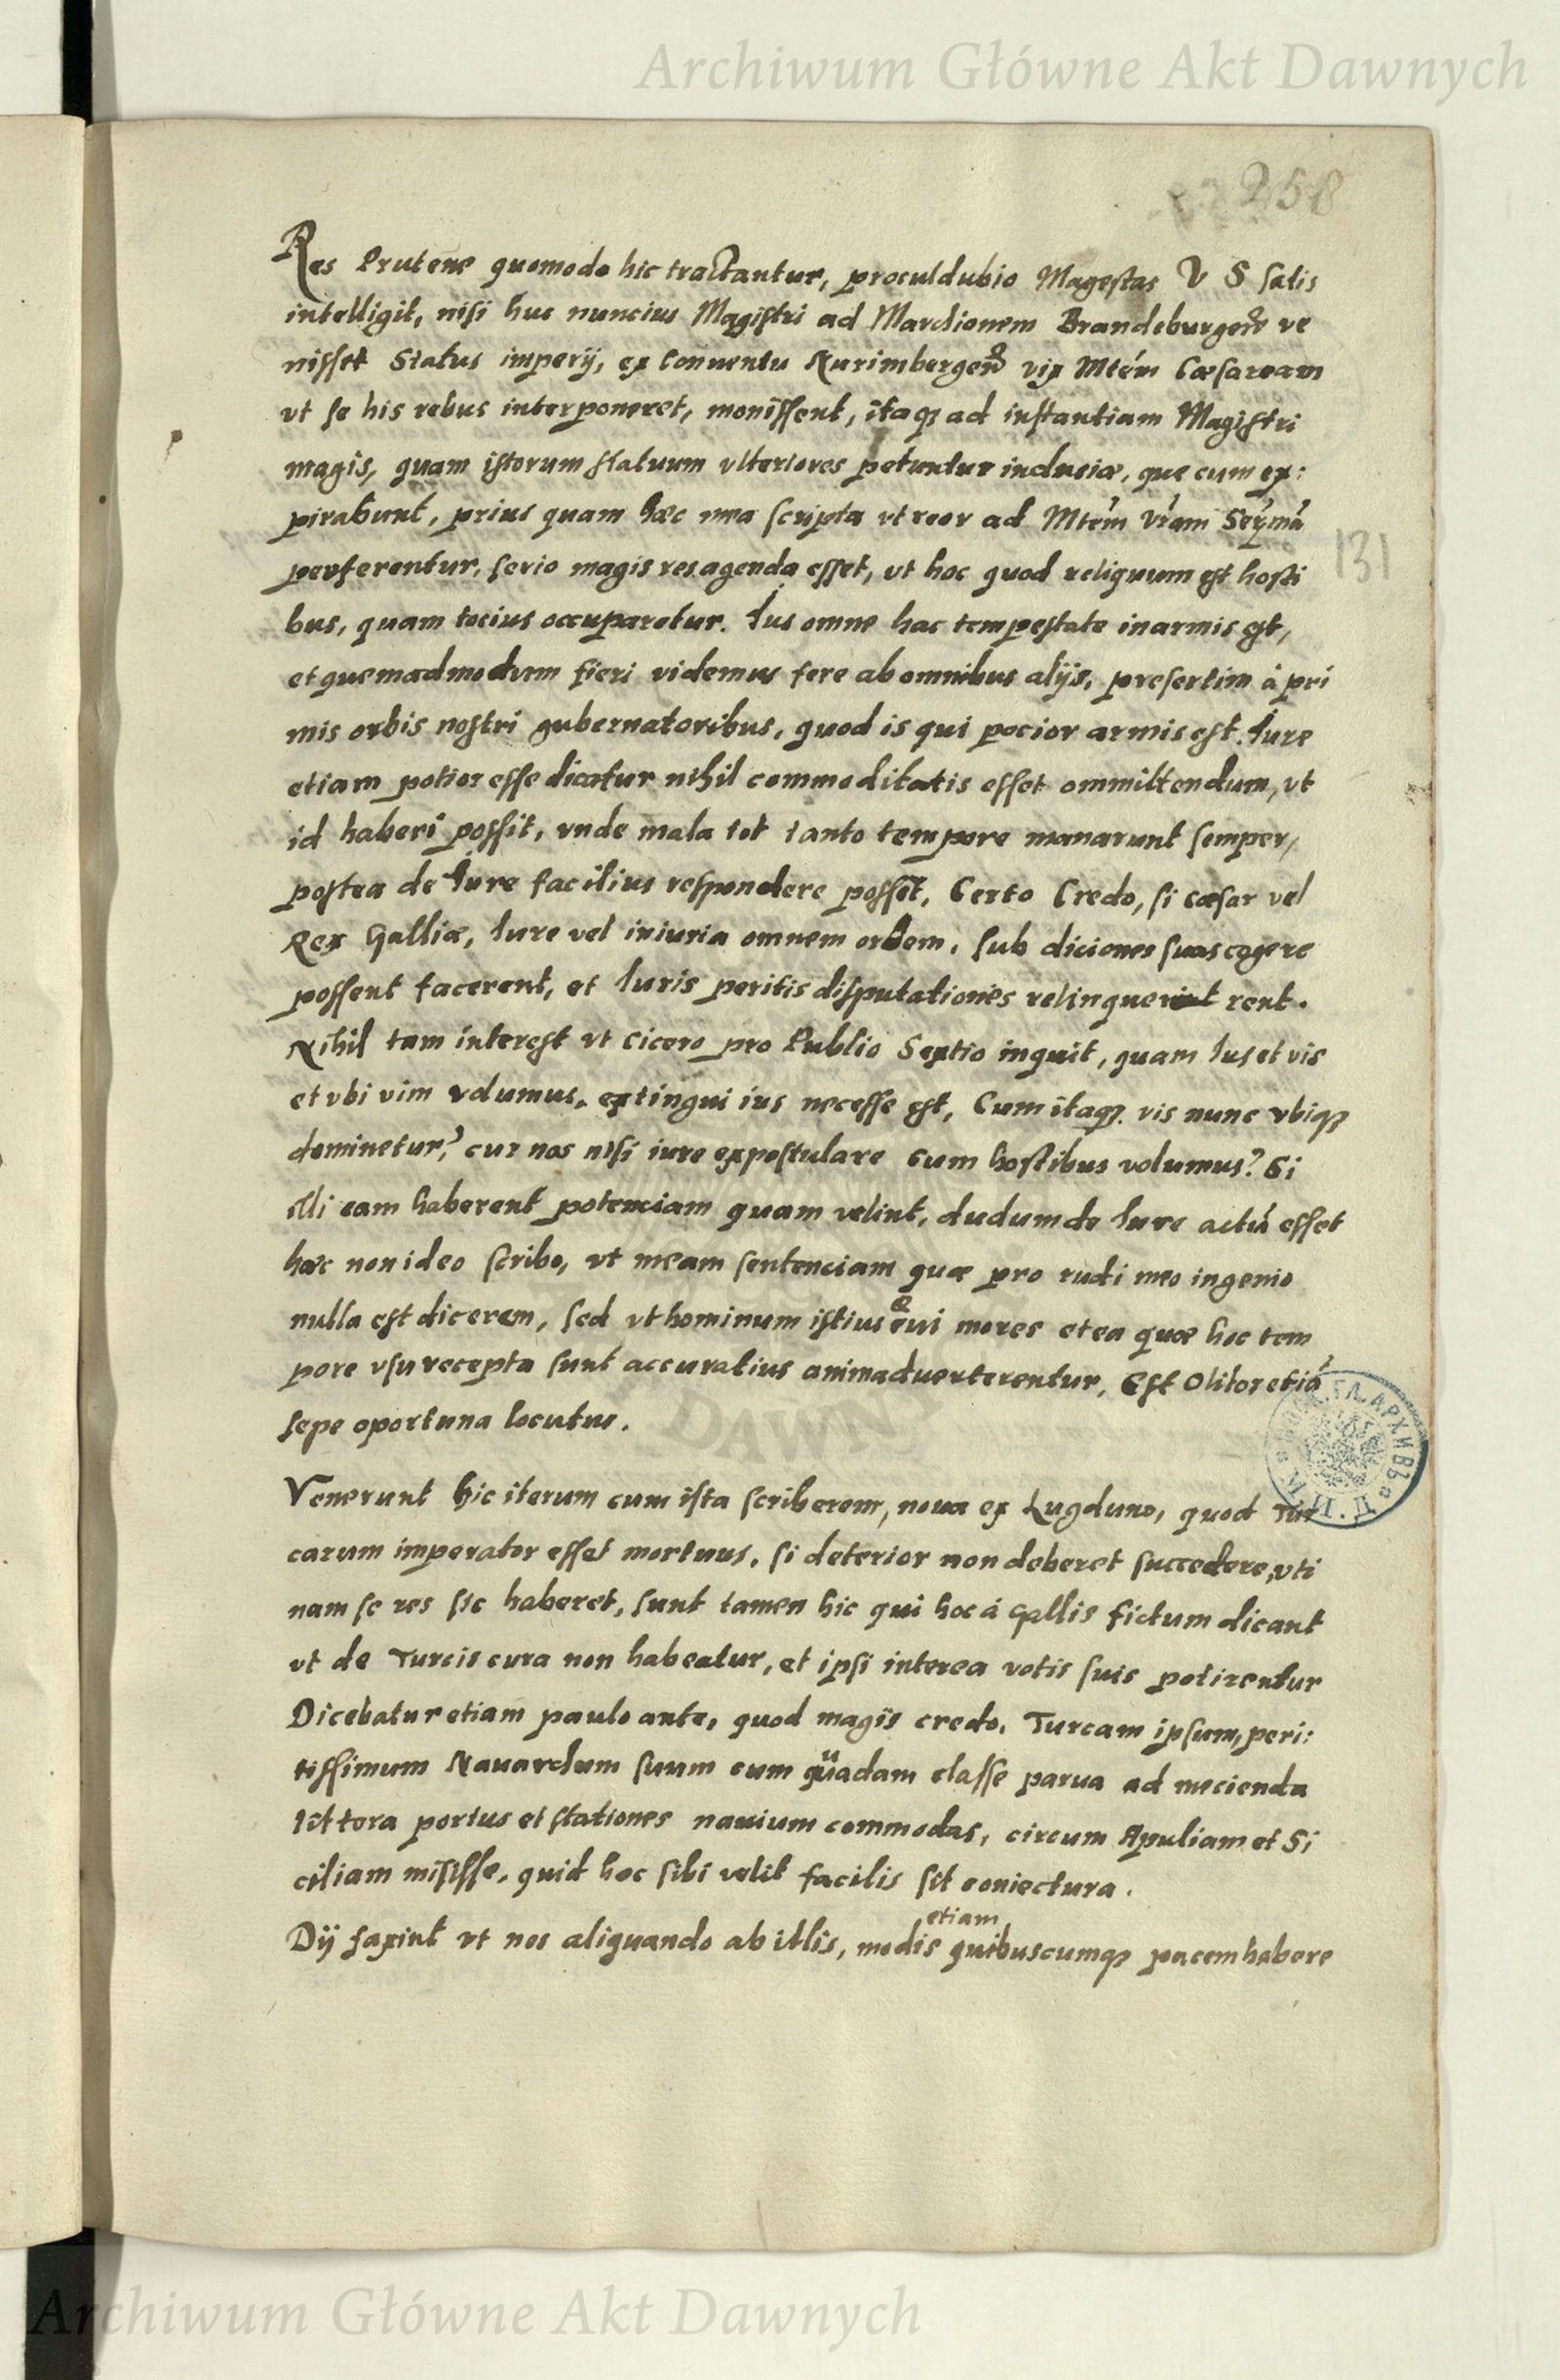 Archiwum Główne Akt Dawnych
258
Res Prutene quomodo hic tractantur, proculdubio Magestas V S satis
intelligit, nisi huc nuncius Magistri ad Marchionem Brandeburgen̄ ve
nisset Status imperij, ex Conuentu Nurimbergen̄ vix Mtém Cæsaream
vt se his rebus interponeret, monissent, itaqꝫ ad instantiam Magistri
magis, quam istorum statuum vlteriores petuntur induciæ, que cum ex:
pirabunt, prius quam hæc mea scripta vt reor ad Mtém Vram̄ Serᷤmā
perferentur, serio magis res agenda esset, vt hoc quod reliquum est hosti
bus, quam tocius occuparetur. Ius omne hac tempestate in armis est,
et quemadmodum fieri videmus fere ab omnibus alijs, presertim à pri
mis orbis nostri gubernatoribus, quod is qui pocior armis est. Iure
etiam potior esse dicatur nihil commoditatis esset ommittendum, vt
id haberi possit, vnde mala tot tanto tempore manarunt semper,
postea de Iure facilius respondere posset, Certo Credo, si cæsar vel
Rex Galliæ, Iure vel iniuria omnem orbem, sub diciones suas cogere
possent facerent, et Iuris peritis disputationes relinquerint rent.
Nihil tam interest vt Cicero pro Publio Sextio inquit, quam Ius et vis
et vbi vim volumus, extingui ius necesse est, Cum itaqꝫ vis nunc vbiqꝫ
dominetur, cur nos nisi iure expostulare cum hostibus volumus? Si
illi eam haberent potenciam quam velint, dudum de Iure actū esset
hæc non ideo scribo, vt meam sentenciam quæ pro rudi meo ingenio
nulla est dicerem, sed vt hominum istius eui mores et ea quæ hoc tem
pore vsu recepta sunt accuratius animaduerterentur, Est Olitor etiā
sepe oportuna locutus.
Venerunt hic iterum cum ista scriberem, noua ex Lugduno, quod Tur
carum imperator esset mortuus, si deterior non deberet succedere, vti
nam se res sic haberet, sunt tamen hic qui hoc á Gallis fictum dicant
vt de Turcis cura non habeatur, et ipsi interea votis suis potirentur
Dicebatur etiam paulo ante, quod magis credo, Turcam ipsum, peri:
tissimum Nauarchum suum cum quadam classe parua ad mecienda
littora portus et stationes nauium commodas, circum Apuliam et Si
ciliam misisse, quid hoc sibi velit facilis sit coniectura.
etiam
Dij faxint vt nos aliquando ab illis, modis quibuscumqꝫ pacem habere
131
Archiwum Główne Akt Dawnych